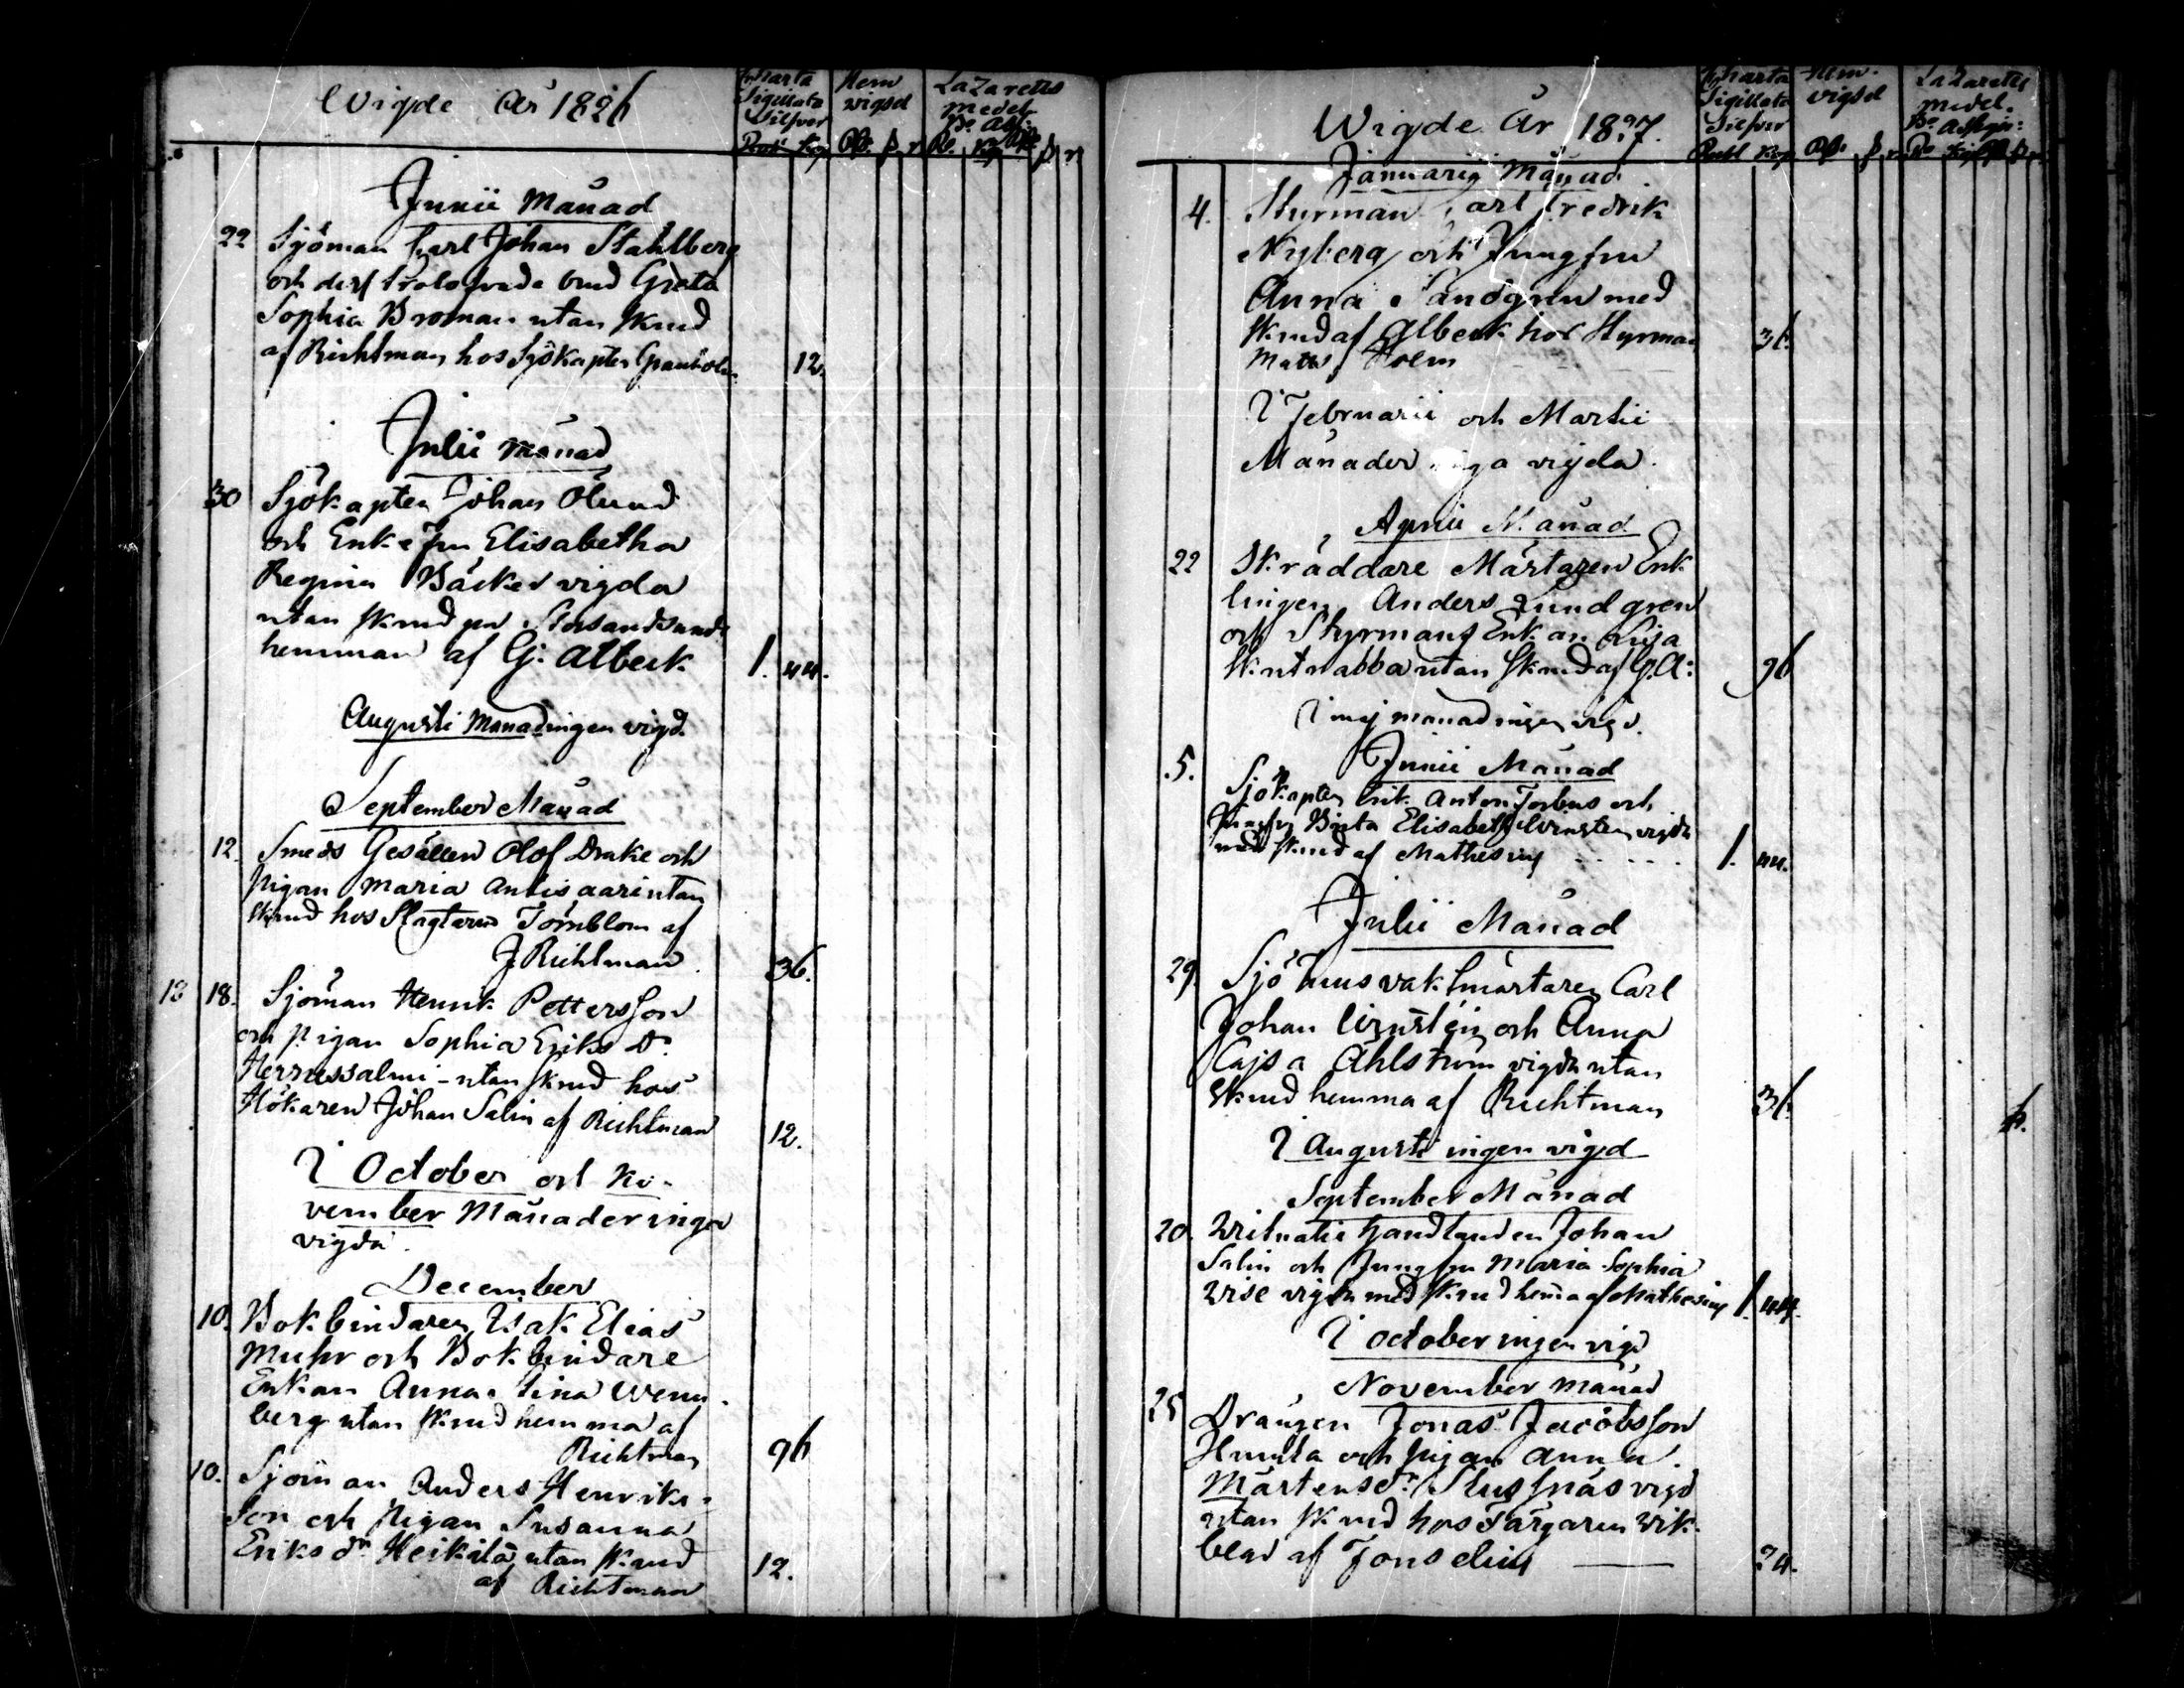 Wigde År 1826
Charta Sigillata Silfver
Hem vigsd
Lazaretts medel
Junii Månad
22 Sjöman Carl Johan Stahlberg
och desf trolofvade brud Greta
Sophia Broman utan skrud
af Richtman hos Sjökapten Granholm 12.
Julii Månad
30 Sjökapten Johan Ölund
och Enkefru Elisabetha
Regina Bäcker vigda
utan skrud på Storsandsunds
hemman af G: Albeck 1. 44.
Augusti Månad ingen vigd.
September Månad
12. Smeds Gesällen Olof Drake och
pigan Maria utan
skrud hos Slagtaren Törnblom af
J Richtman 36.
13 18. Sjöman Henrik Pettersson
och pigan Sophia Eriks Dr
utan skrud hos
Hökaren Johan Salin af Richtman 12.
I October och No-
vember Månader inga
vigda.
December
10. Bokbindaren Isak Elias
Muhr och Bokbindare
Enkan Anna Stina Wenn-
berg utan skrud hemma af
Richtman 96
10. Sjöman Anders Henriks-
son och pigan Susanna
Eriks dr Heikilä utan skrud
af Richtman 12.
Wigde År 1827.
Charta Sigillata Silfver
Hem-vigsd
Lazaretts medel.
Rubl Kop
Januarii Månad
4. Styrman Carl Fredrik
Nyberg och Jungfru
Anna Sandgren med
skrud af Albeck hos Styrman 36.
Matts Holm
I Februarii och Martii
Månader inga vigda.
Aprili Månad
22 Skräddare Mästaren Enk
lingen Anders Lundgren
och Styrmans Enkan Lisa
Skutnabba utan skrud af G.A: 96
I maj månad ingen vigd.
Junii Månad
5. Sjökapten Erik Anton Jorbus och
Jungfru Brita Elisabeth vigda
med skrud af Mathesius 1. 44.
Julii Månad
29. Sjöhusvaktmästaren Carl
Johan och Anna
Cajsa Åhlström vigda utan
skrud hemma af Richtman 36
I Augusti ingen vigd
September Månad
20. Handlanden Johan
Salin och Jungfru Maria Sophia
Wise vigda med skrud hemma af Mathesius 1. 44.
I October ingen vigd
November Månad
25 Drängen Jonas Jacobsson
och pigan Anna
Mårtensdr vigd
utan skrud hos Färgaren Wik-
blad af Jonselius 24.